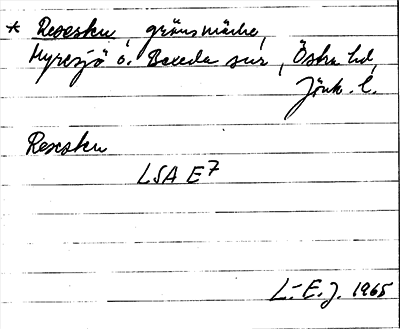 * Resesku, gränsmärke,
Myresjö o. Bäckeda snr, Östra hd,
Jönk. l.
Resesku
LSA E7
L.-E. J. 1965